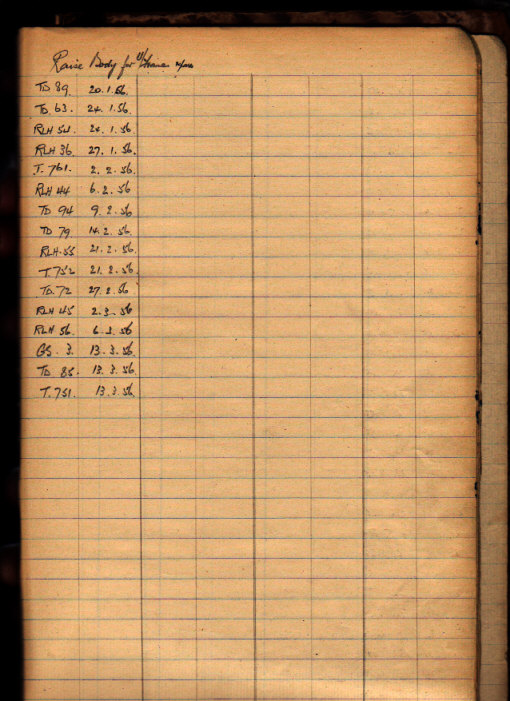 Raise Body for U/frame
TD 89. 20.1.56.
TD. 63. 24.1.56.
RLH 54. 24.1.56
RLH 36. 27.1.56.
T. 761. 2.2.56.
RLH 44 6.2.56
TD 94 9.2.56
TD 79 14.2.56.
RLH.55 21.2.56.
T.752 21.2.56.
TD.72 27.2.56
RLH 45 2.3.56
RLH 56. 6.3.56
GS. 3. 13.3.56.
TD 85. 13.3.56.
T.751. 13.3.56.